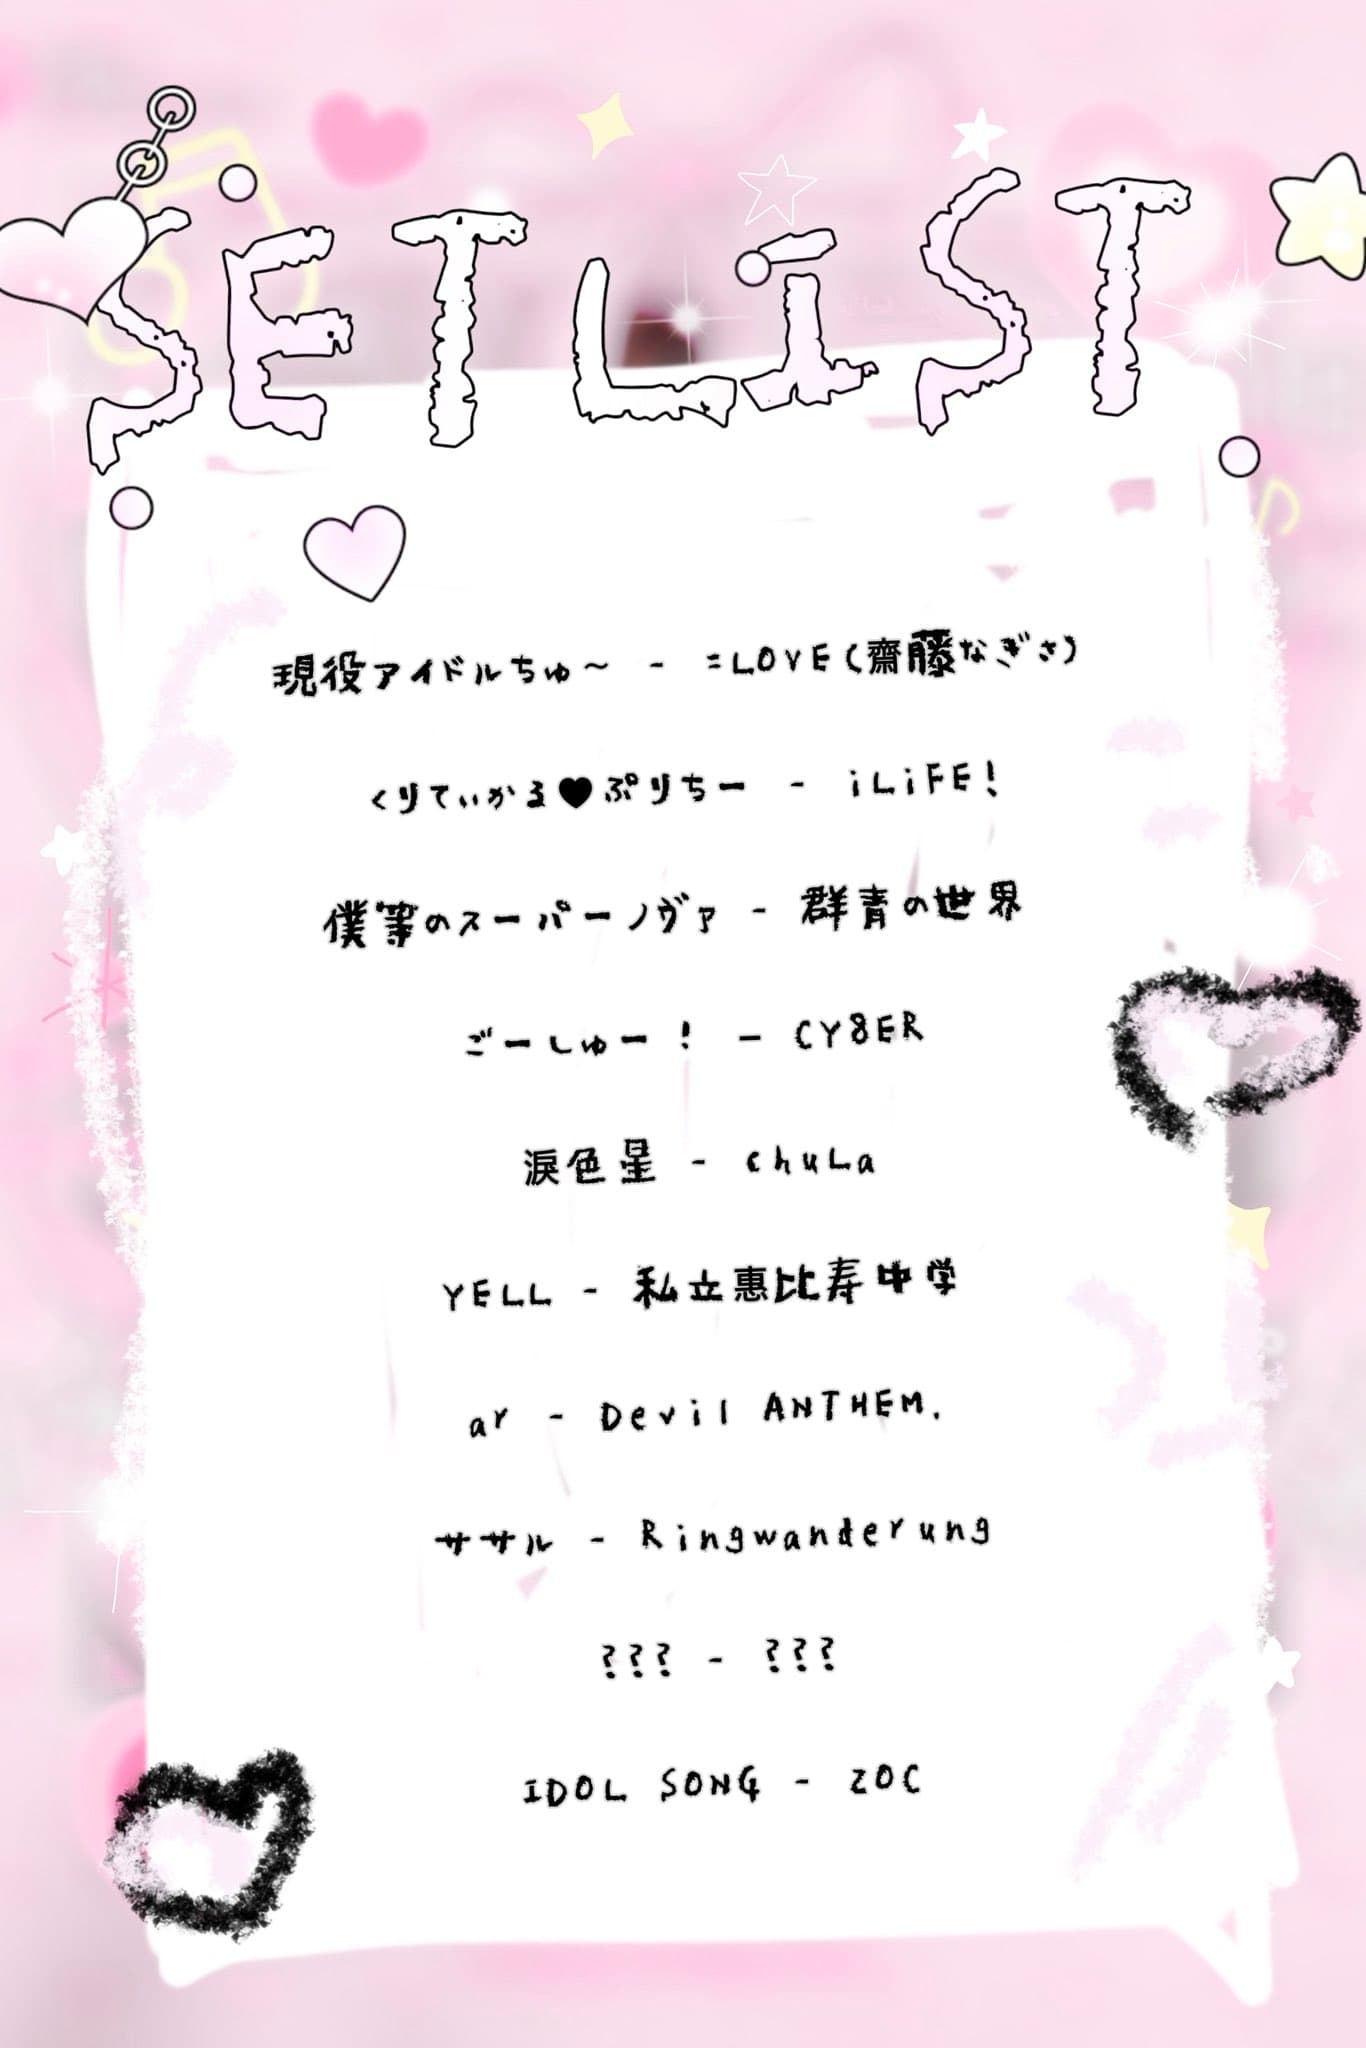 SETLiST
現役アイドルちゅ〜 - =LOVE(齋藤なぎさ)
くりてぃかる♥ぷりちー - iLiFE!
僕等のスーパーノヴァ - 群青の世界
ごーしゅー! - CY8ER
涙色星 - chuLa
YELL - 私立恵比寿中学
ar - Devil ANTHEM.
ササル - Ringwanderung
??? - ???
IDOL SONG - ZOC